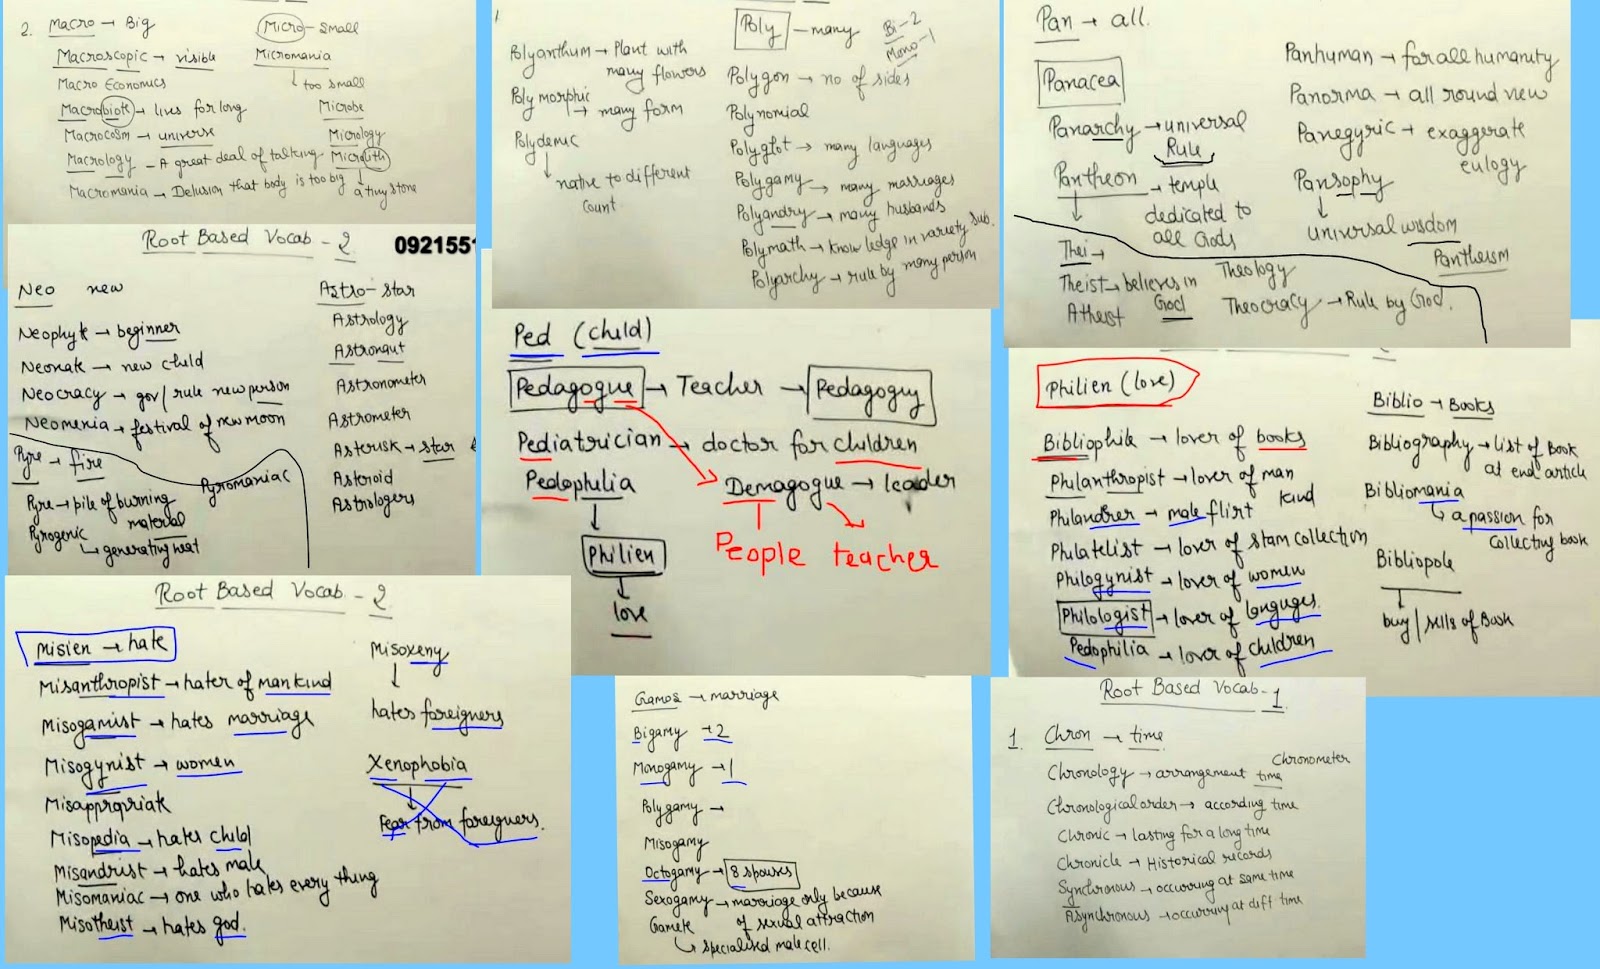 2. Macro → Big
Macroscopic → visible
Macro Economics
Macrobiote → lives for long
Macrocosm → universe
Macrology - A great deal of talking
Macromania → Delusion that body is too big
Micro - small
Micromania
↓ too small
Microbe
Micrology
Microlith
↓
a tiny stone
Poly - many
Bi-2
Mono-1
Polyanthum → Plant with
many flowers
Polymorphic
→ many form
Polydemic
↓
native to different
count
Polygon → no of sides
Polynomial
Polyglot → many languages
Polygamy → many marriages
Polyandry → many husbands
Polymath → knowledge in variety sub.
Polyarchy → rule by many person
Pan → all.
Panacea
Panarchy → universal
Rule
Pantheon → temple
dedicated to
all Gods
Thei →
Theist → believes in
God
Atheist
Theology
Theocracy → Rule by God.
Panhuman → for all humanity
Panorma → all round view
Panegyric → exaggerate
eulogy
Pansophy
↓
universal wisdom
Pantheism
Root Based Vocab - 2
0921551
Neo new
Neophyte → beginner
Neonate → new child
Neocracy → gov/rule new person
Neomenia → festival of new moon
Pyre → fire
Pyre → pile of burning
material
Pyrogenic
↳ generating heat
Pyromaniac
Astro - star
Astrology
Astronaut
Astronometer
Astrometer
Asterisk → star
Asteroid
Astrologers
Ped (child)
Pedagogue → Teacher → Pedagoguy
Pediatrician → doctor for children
Pedophilia
Demagogue → leader
People teacher
↓
Philien
↓
love
Philien (love)
Bibliophile → lover of books
Philanthropist → lover of man
kind
Philandrer → male flirt
Philatelist → lover of stam collection
Philogynist → lover of women
Philologist → lover of languges.
Pedophilia → lover of children
Biblio → Books
Bibliography → list of Book
at end article
Bibliomania
↳ a passion for
collecting book
Bibliopole
↓
buy/sells of Book
Root Based Vocab - 2
Misien → hate
Misanthropist → hater of mankind
Misogamist → hates marriage
Misogynist → women
Misappropriate
Misopedia → hates child
Misandrist → hates male
Misomaniac → one who hates every thing
Misotheist → hates god.
Misoxeny
↓
hates foreigners
Xenophobia
↓
Fear from foreigners.
Gamos → marriage
Bigamy → 2
Monogamy → 1
Polygamy →
Misogamy
Octogamy → 8 spouses
Sexogamy → marriage only because
of sexual attraction
Gamete
↳ specialised male cell.
Root Based Vocab - 1.
1. Chron → time
Chronometer
Chronology → arrangement time
Chronological order → according time
Chronic → lasting for a long time
Chronicle → Historical records
Synchronous → occurring at same time
Asynchronous → occurring at diff time